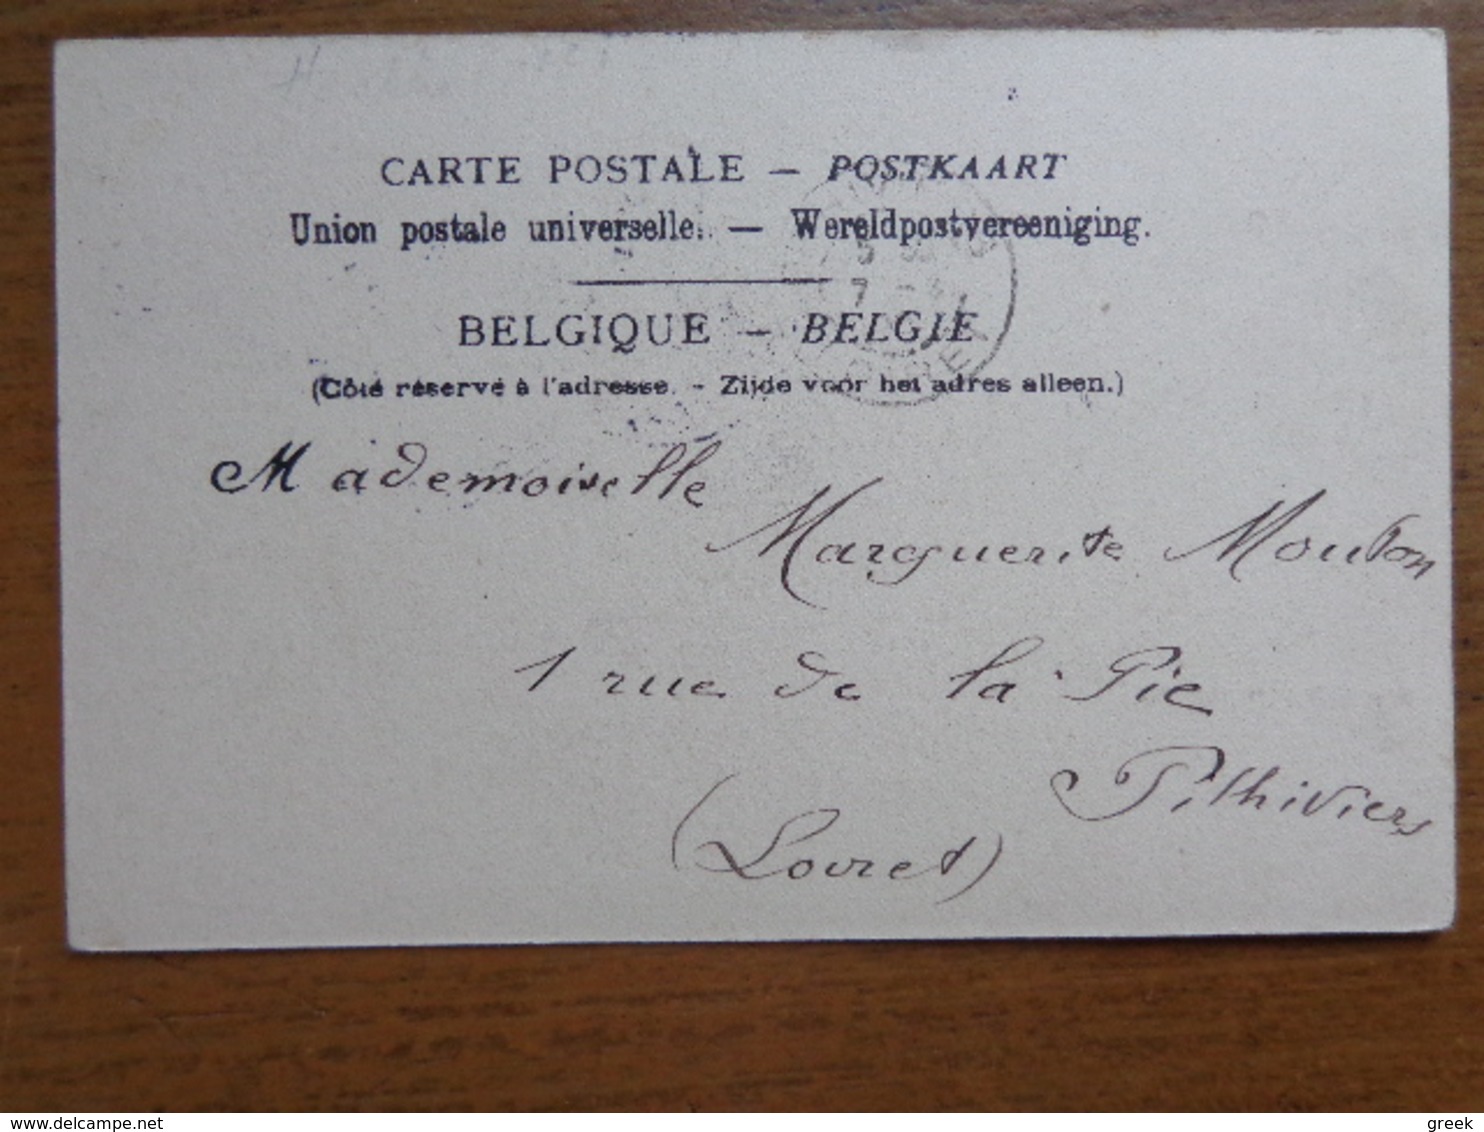 CARTE POSTALE — POSTKAART
Union postale universelle. — Wereldpostvereeniging.
BELGIQUE — BELGIE
(Côté réservé à l'adresse. - Zijde voor het adres alleen.)
Mademoiselle
Marguerite Mouton
1 rue de la Pie
Pithiviers
(Loiret)
delcampe.net
greek